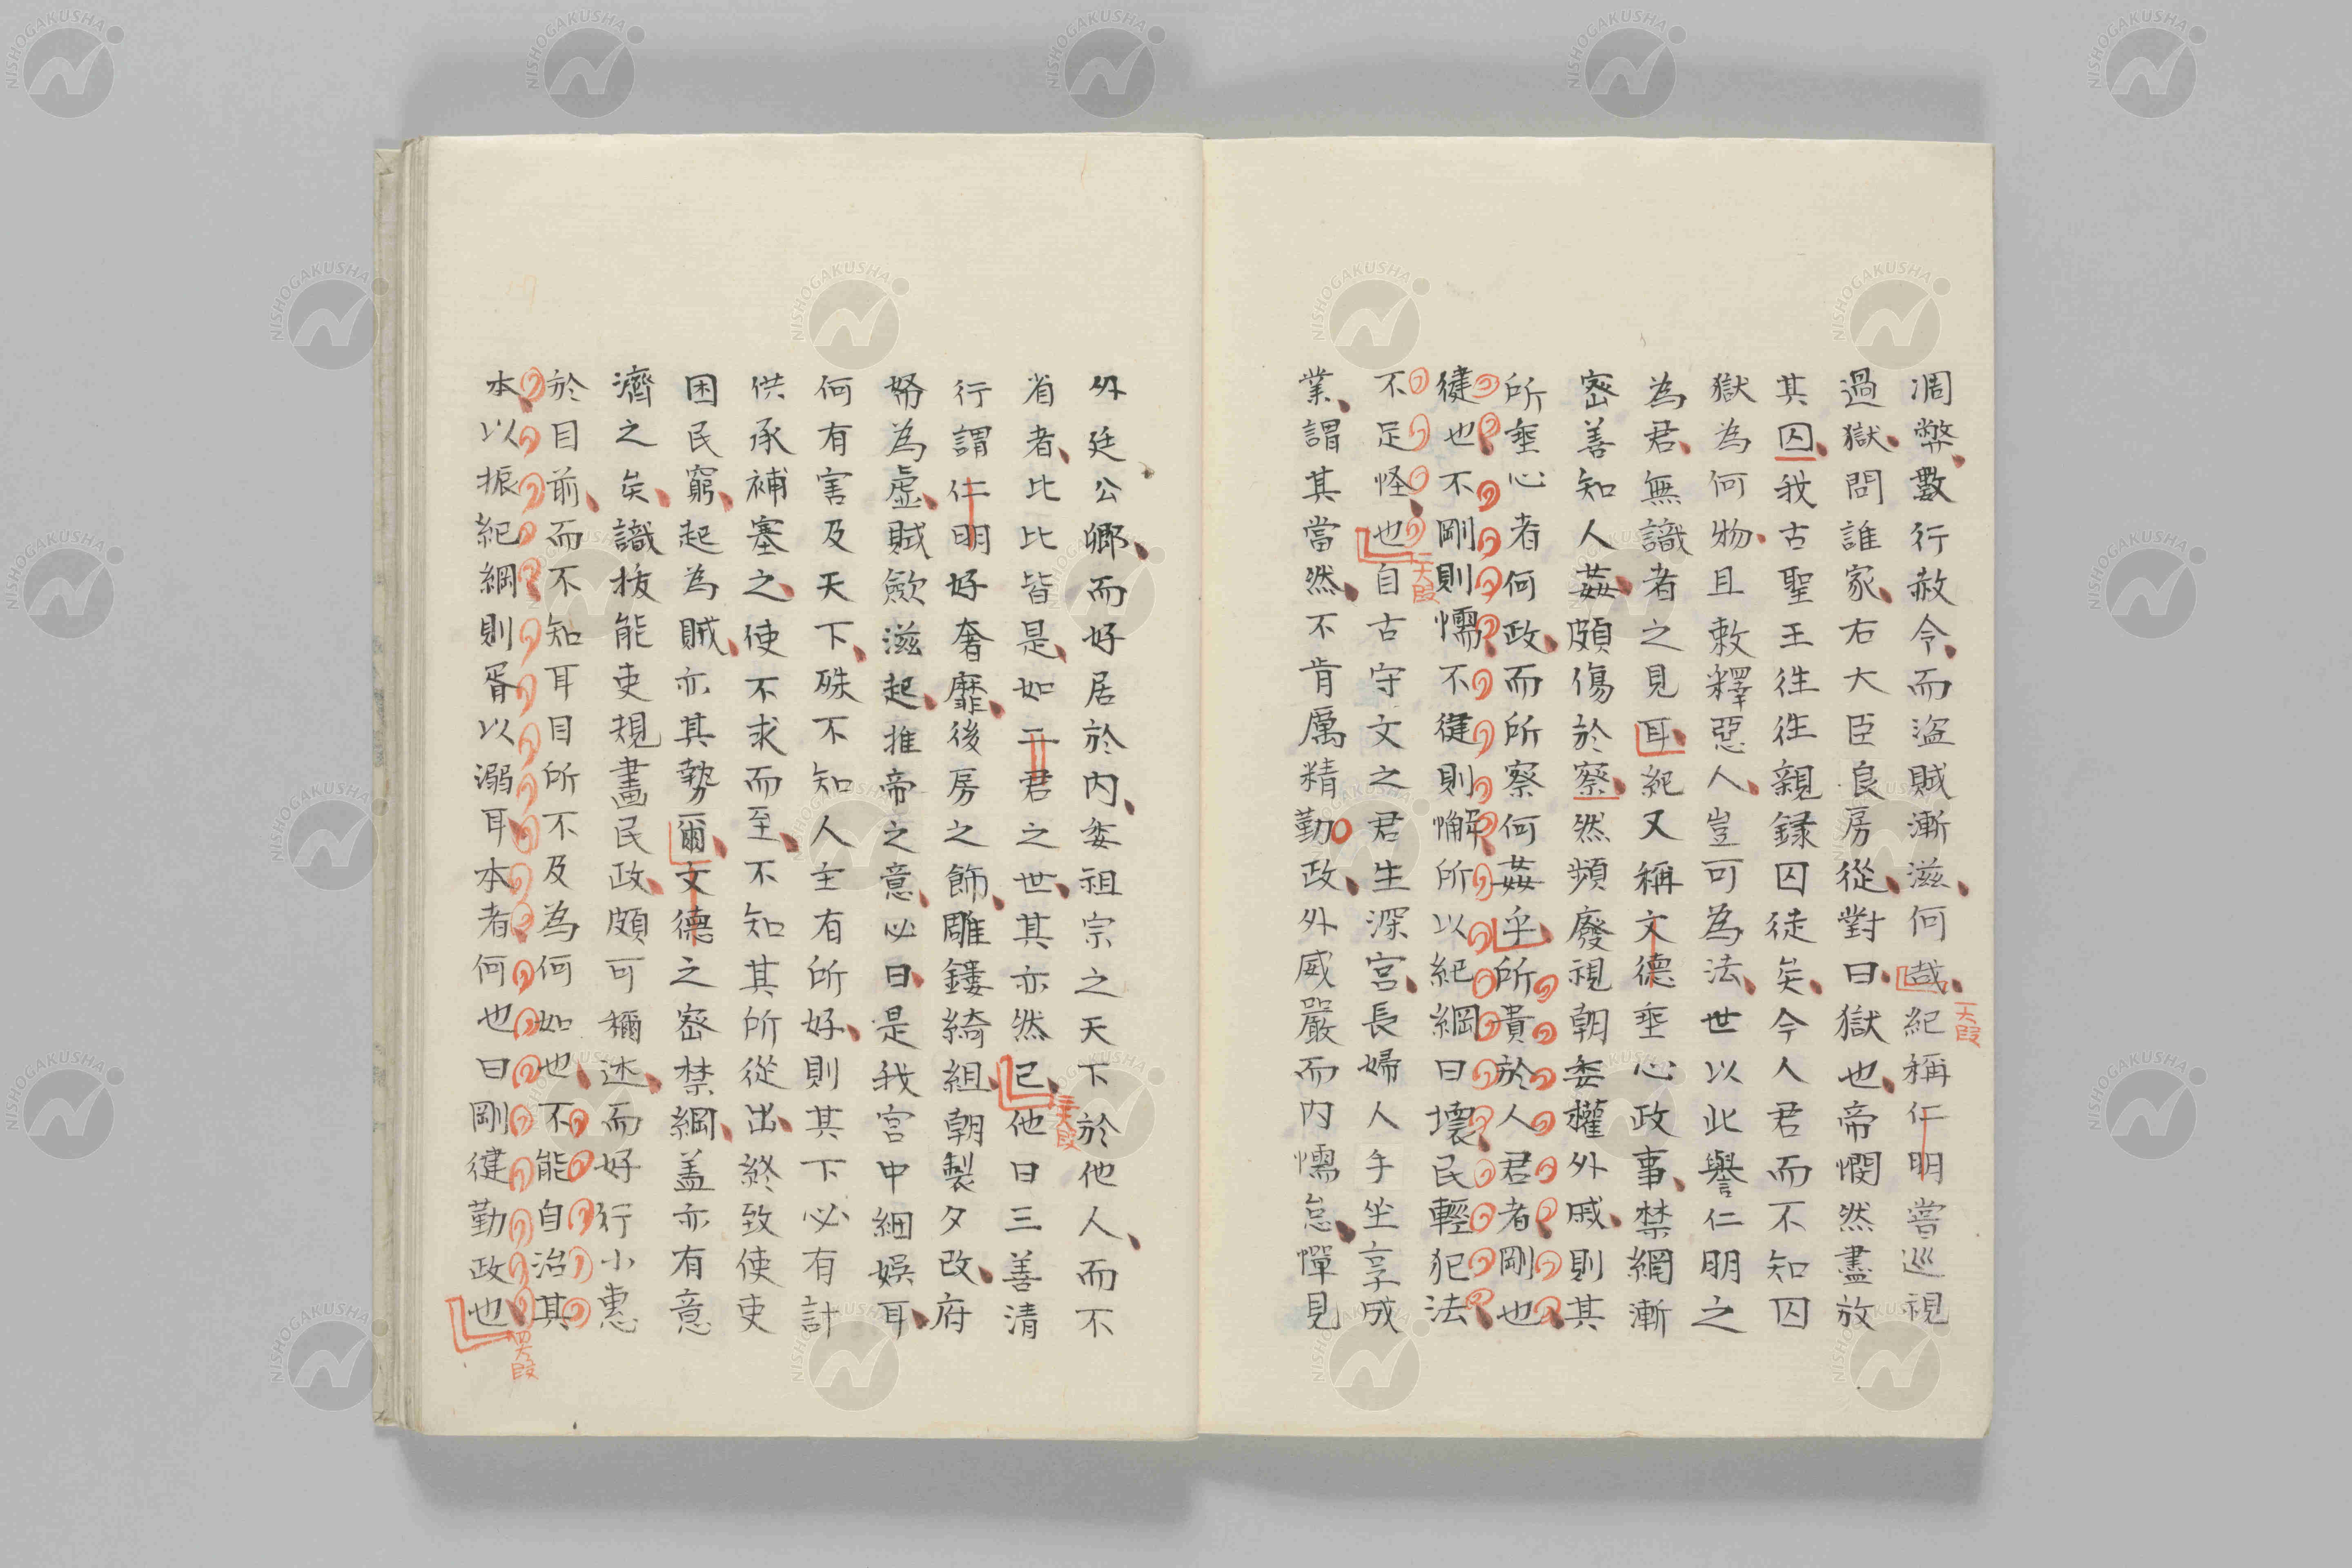 凋弊數行赦令而盜賊漸滋何哉紀稱仁明嘗巡視
一大段
過獄問誰家右大臣良房從對曰獄也帝憫然盡放
其囚我古聖王往往親錄囚徒矣今人君而不知囚
獄為何物且敕釋惡人豈可為法世以此譽仁明之
為君無識者之見耳紀又稱文德垂心政事禁網漸
密善知人姦頗傷於察然頻廢視朝委權外戚則其
所垂心者何政而所察何姦乎所貴於人君者剛也
健也不剛則懦不健則懈所以紀綱日壞民輕犯法
不足怪也自古守文之君生深宮長婦人手坐享成
二大段
業謂其當然不肯厲精勤政外威嚴而內懦怠憚見
外廷公卿而好居於內委祖宗之天下於他人而不
省者比比皆是如二君之世其亦然已他日三善清
三大段
行謂仁明好奢靡後房之飾雕鏤綺組朝製夕改府
帑為虛賦斂滋起推帝之意必曰是我宮中細娛耳
何有害及天下殊不知人主有所好則其下必有計
供承補塞之使不求而至不知其所從出終致使吏
困民窮起為賊亦其勢爾文德之密禁綱蓋亦有意
濟之矣識拔能吏規畫民政頗可稱述而好行小惠
於目前而不知耳目所不及為何如也不能自治其
本以振紀綱則胥以溺耳本者何也曰剛健勤政也
四大段
NISHOGAKUSHA